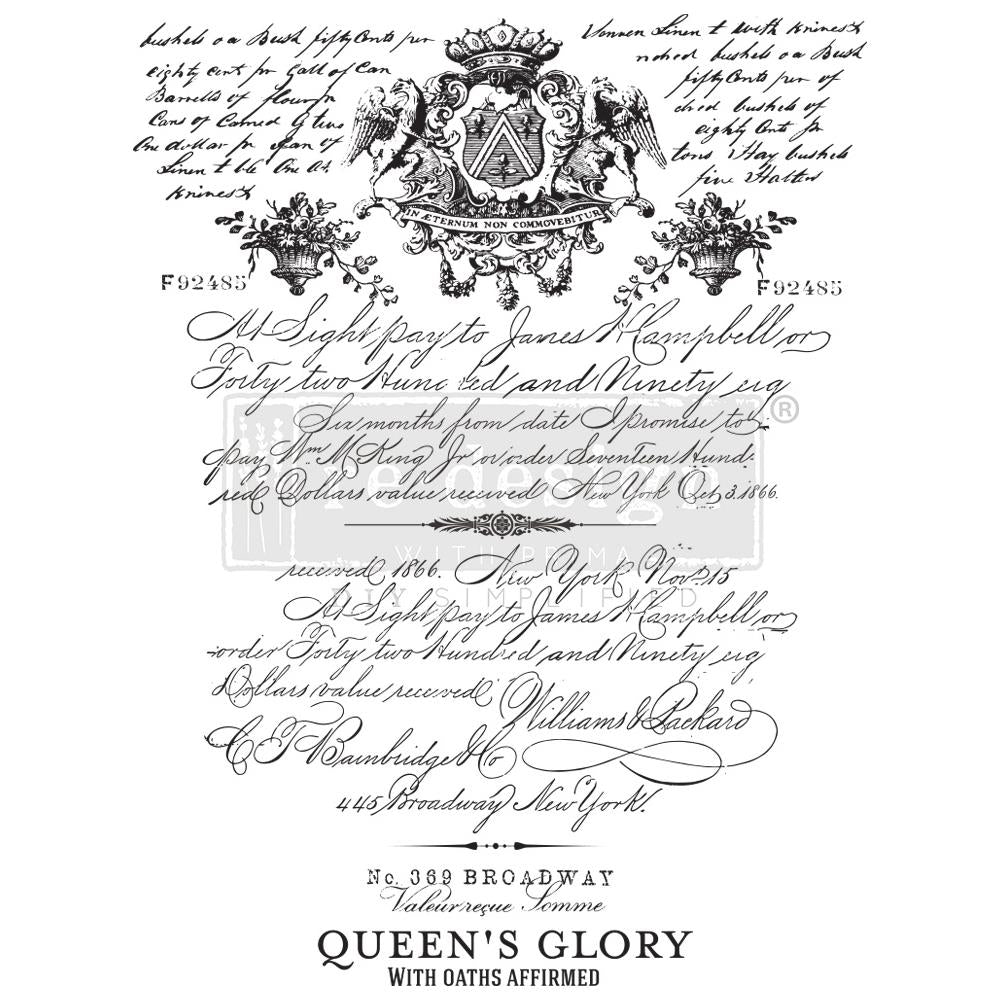 bushels oa Bush fifty Cents per
eighty cent pr Gall of Can
Barrells of flour pr
Cans of Canned G
One dollar pr of
Linen t ble One At
Vonnen Linen t with
bushels oa Bush
fifty Cents per of
dred bushels of
eighty Cents pr
tons Hay bushels
five Halters
IN ÆTERNUM NON COMMOVEBITUR
F92485
F92485
At Sight pay to James H Campbell or
Forty two Hundred and Ninety eig
Six months from date I promise to
pay Wm McKing Jr or order Seventeen Hund-
red Dollars value received New York Oct 3. 1866.
re design
®
WITH PRIMA
DIY SIMPLIFIED
received 1866. New York Nov. 15
At Sight pay to James H Campbell or
order Forty two Hundred and Ninety eig
Dollars value received
Williams & Packard
C T Bainbridge & Co
445 Broadway New York.
No. 369 BROADWAY
Valeur reçue Somme
QUEEN'S GLORY
WITH OATHS AFFIRMED